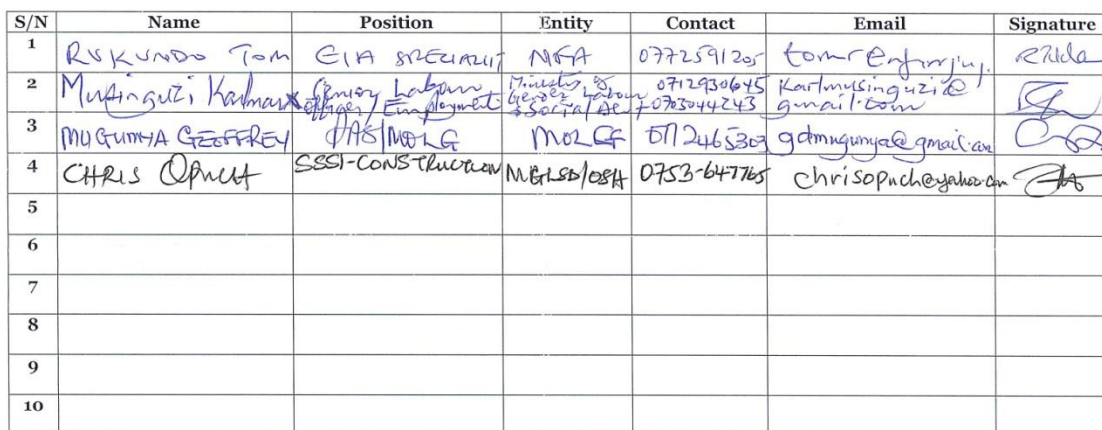 S/N Name Position Entity Contact Email Signature
1 RUKUNDO TOM EIA SPECIALIST NFA 0772591205
2 Musinguzi Karlmarx Senior Labour Officer/Employment Ministry of Gender Labour & Social Dev't 0712930645 0703044243 Karlmusinguzi@gmail.com
3 MUGUMYA GEOFFREY PAS/MOLG MOLG 0772465303 gdmugumya@gmail.com
4 CHRIS OPUCH SSSI-CONSTRUCTION MGLSD/OSH 0753-647765 chrisopuch@yahoo.com
5
6
7
8
9
10